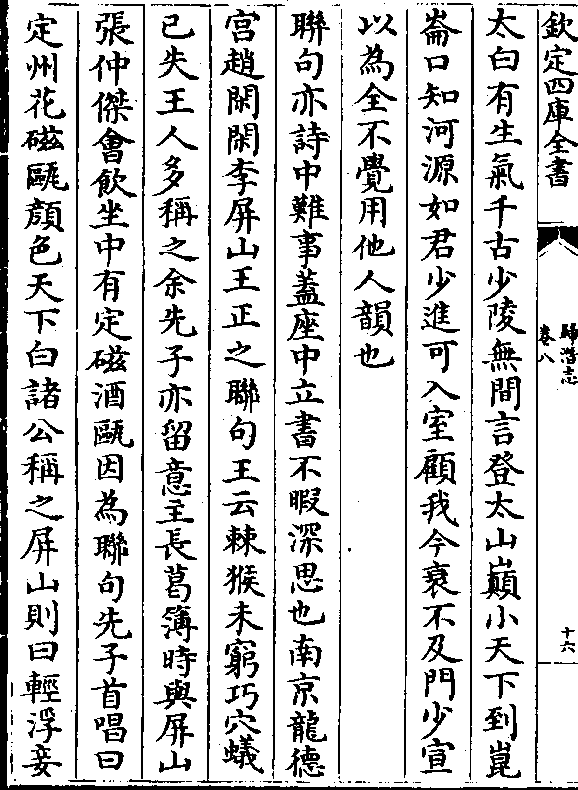 欽定四庫全書
歸濳志
卷八
十六
太白有生氣千古少陵無間言登太山巔小天下到崑
崙口知河源如君少進可入室顧我今衰不及門少宣
以為全不覺用他人韻也
聯句亦詩中難事葢座中立書不暇深思也南京龍德
宮趙閑閑李屏山王正之聯句王云棘猴未窮巧穴蟻
已失王人多稱之余先子亦留意主長葛簿時與屏山
張仲傑會飲坐中有定磁酒甌因為聯句先子首唱曰
定州花磁甌顔色天下白諸公稱之屏山則曰輕浮妾